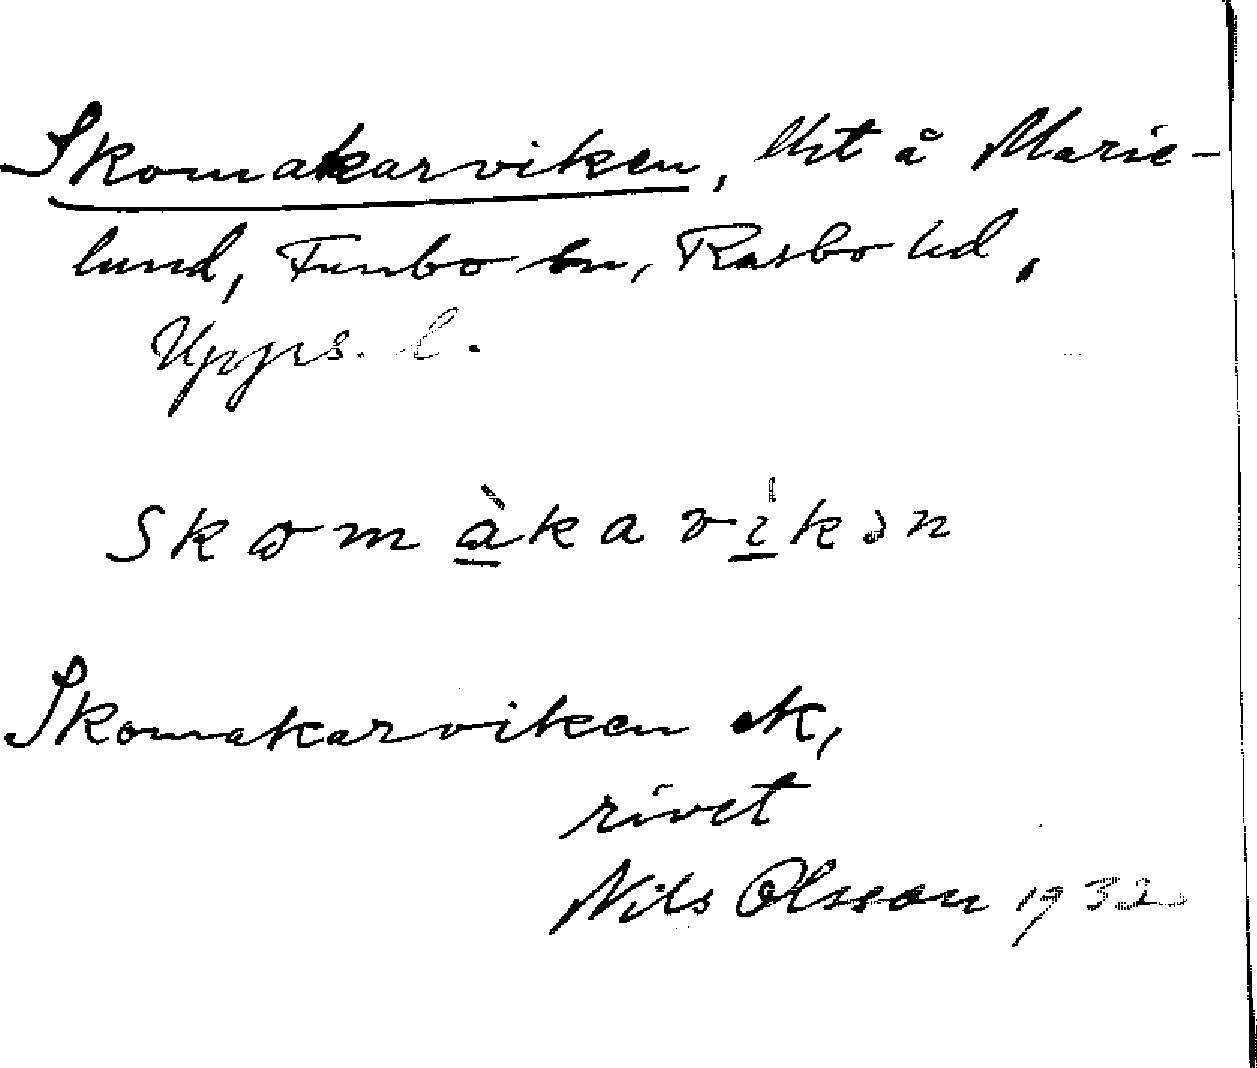 Skomakarviken, lht å Marie-
lund, Funbo sn, Rasbo hd,
Upps. l.
skωmàkavikən
Skomakarviken ek,
rivet
Nils Olsson 1932